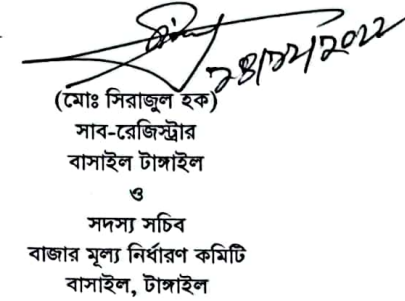 ২৪/১১/২০২২
(মোঃ সিরাজুল হক)
সাব-রেজিস্ট্রার
বাসাইল টাঙ্গাইল
ও
সদস্য সচিব
বাজার মূল্য নির্ধারণ কমিটি
বাসাইল, টাঙ্গাইল